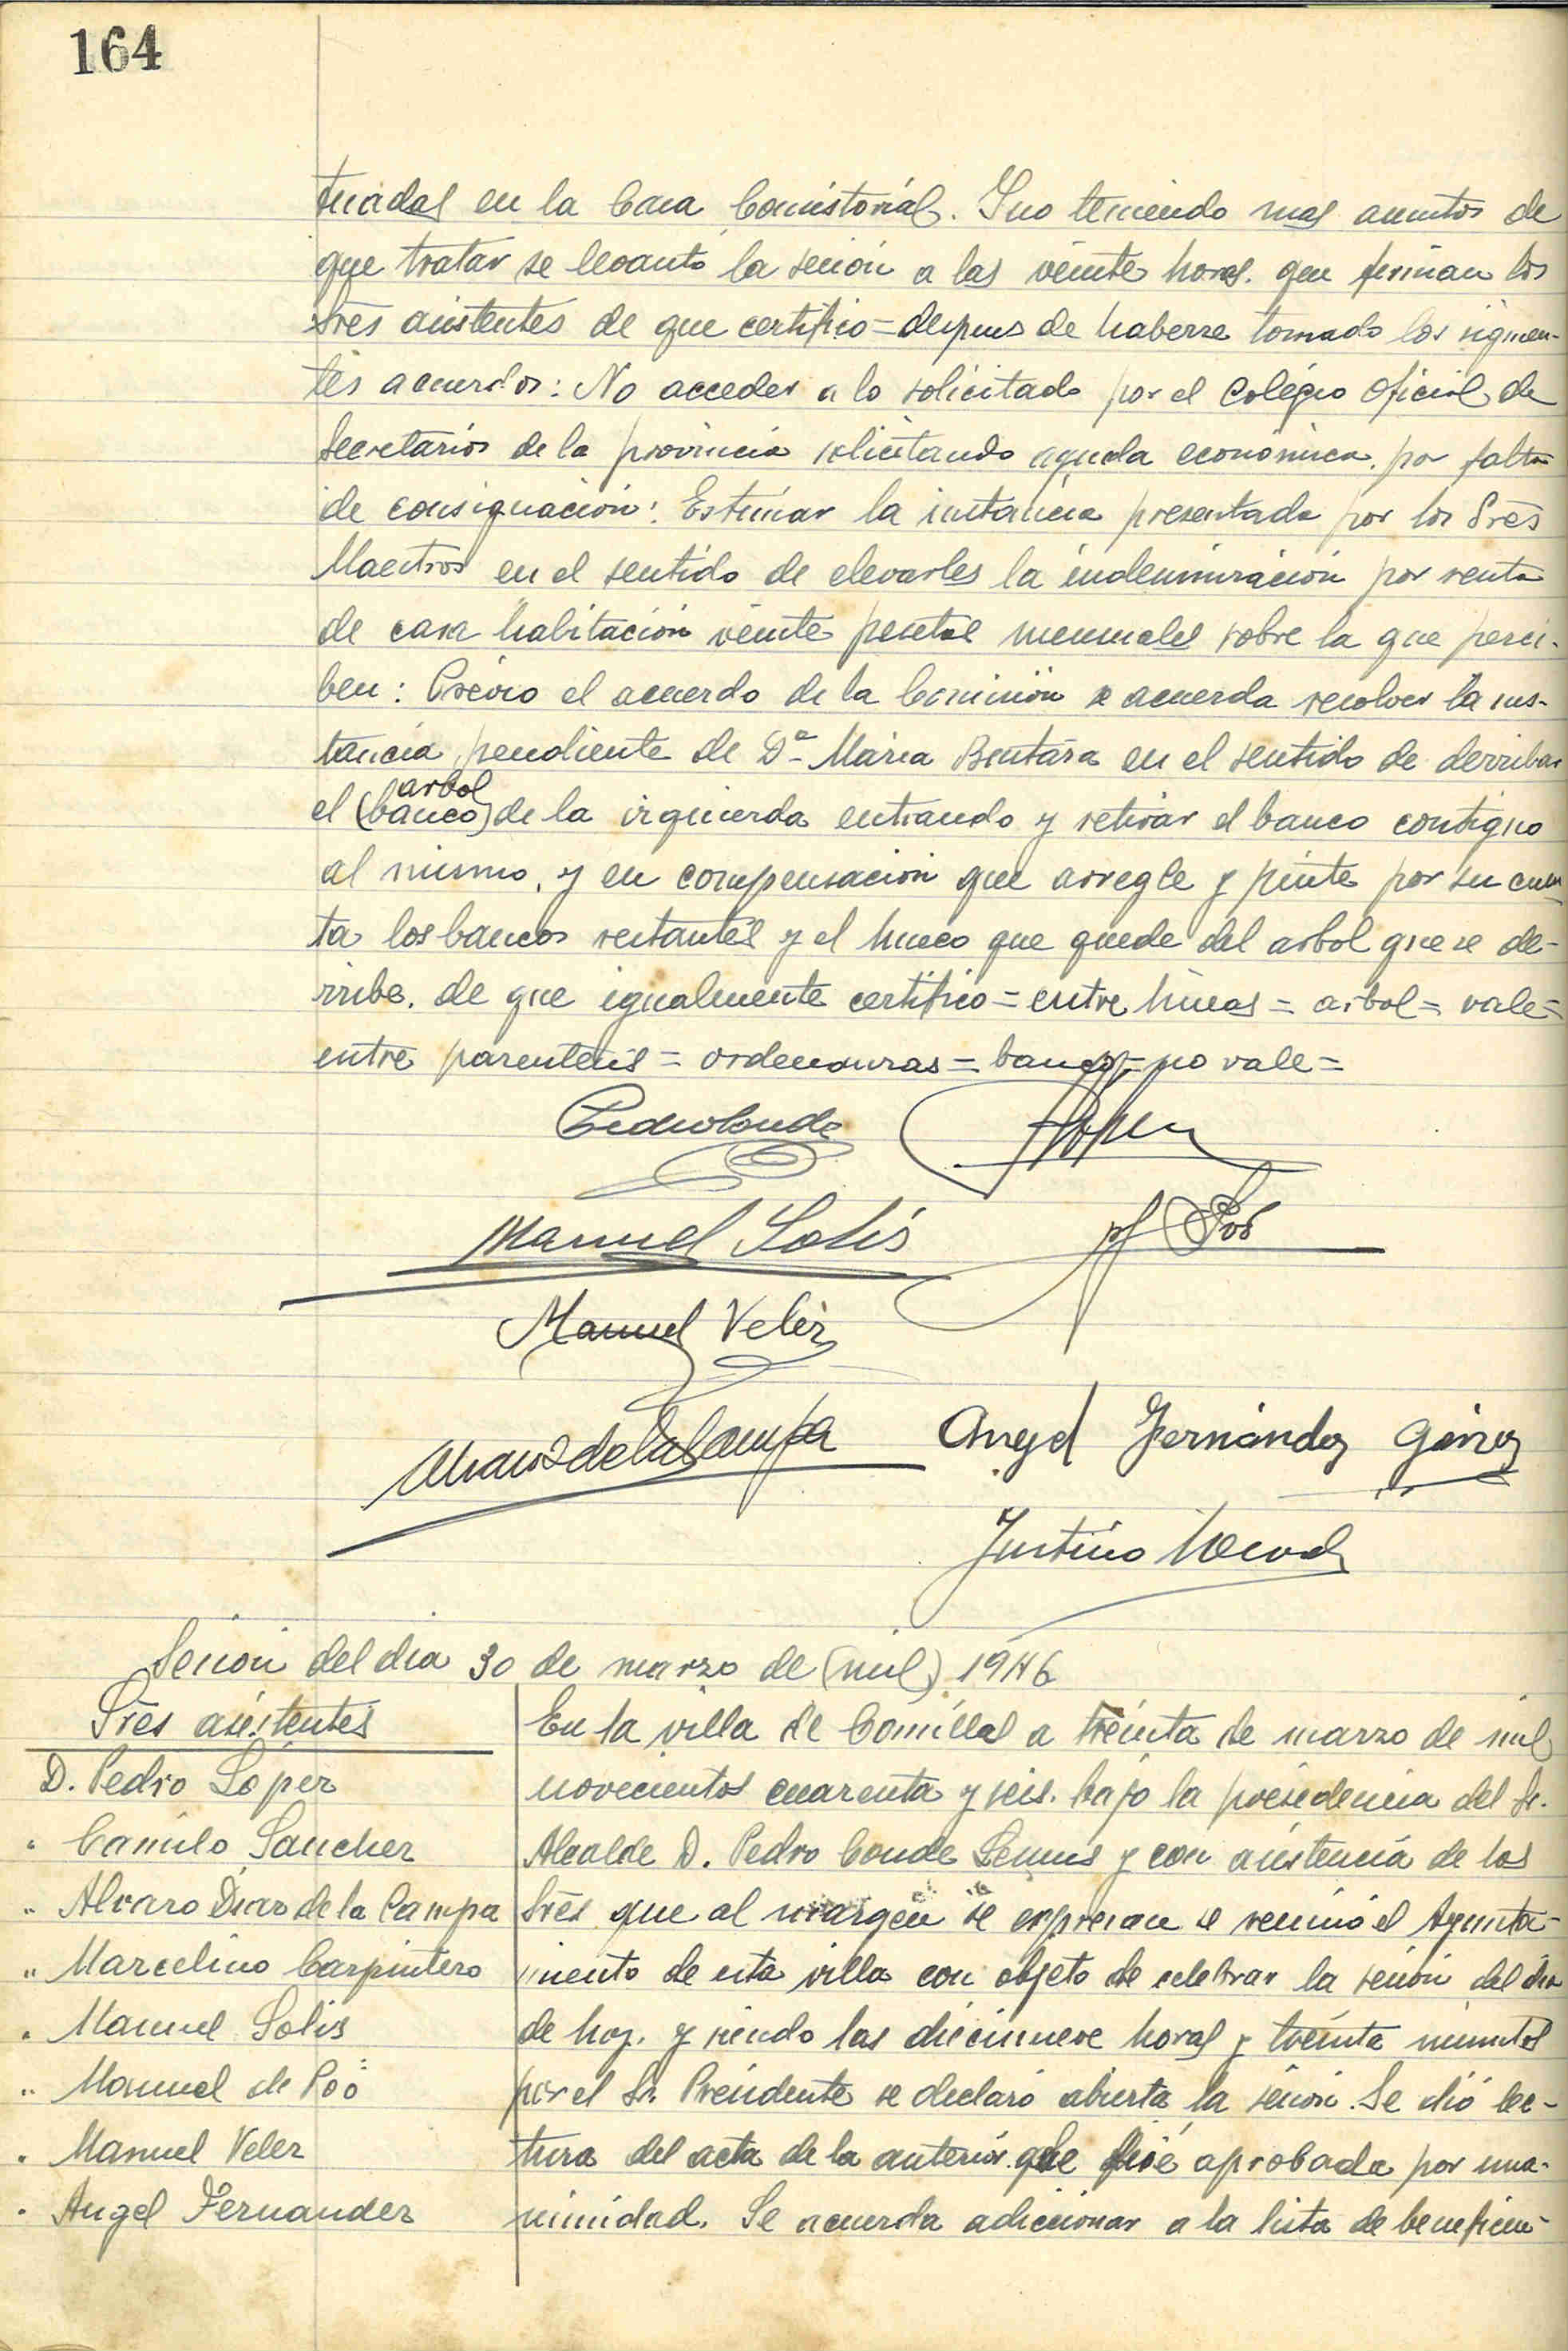 164
tuadas en la Casa Consistorial. Y no teniendo mas asuntos de
que tratar se levantó la sesión a las veinte horas. que firman los
Sres asistentes de que certifico = despues de haberse tomado los siguien-
tes acuerdos: No acceder a lo solicitado por el Colegio Oficial de
Secretarios de la provincia solicitando ayuda económica. por falta
de consignación: Estimar la instancia presentada por los Sres
Maestros en el sentido de elevarles la indemnización por renta
de casa habitación veinte pesetas mensuales sobre la que perci-
ben: Previo el acuerdo de la Comisión se acuerda resolver la ins-
tancia pendiente de Dª Maria en el sentido de derribar
arbol
el (banco) de la izquierda entrando y retirar el banco contiguo
al mismo, y en compensación que arregle y pinte por su cuen
ta los bancos restantes y el hueco que quede del arbol que se de-
rribe. de que igualmente certifico = entre lineas = arbol = vale =
entre parentesis = = banco = no vale =
Pedro Conde
PLópez
Manuel Solis
Poó
Manuel Velez
Alvaro D de la Campa Angel Fernández
Justino
Sesion del dia 30 de marzo de (mil) 1946
Sres asistentes
D. Pedro Lopez
" Camilo Sanchez
" Alvaro Diaz de la Campa
" Marcelino Carpintero
" Manuel Solis
" Manuel de Poó
" Manuel Velez
" Angel Fernandez
En la villa de Comillas a treinta de marzo de mil
novecientos cuarenta y seis. bajo la presidencia del Sr.
Alcalde D. Pedro Conde Lemus y con asistencia de los
Sres que al margen se expresan se reunió el Ayunta-
miento de esta villa con objeto de celebrar la sesión del dia
de hoy. y siendo las diecinueve horas y treinta minutos
por el Sr. Presidente se declaró abierta la sesión. Se dió lec-
tura del acta de la anterior. que fué aprobada por una-
nimidad. Se acuerda adicionar a la lista de beneficen-